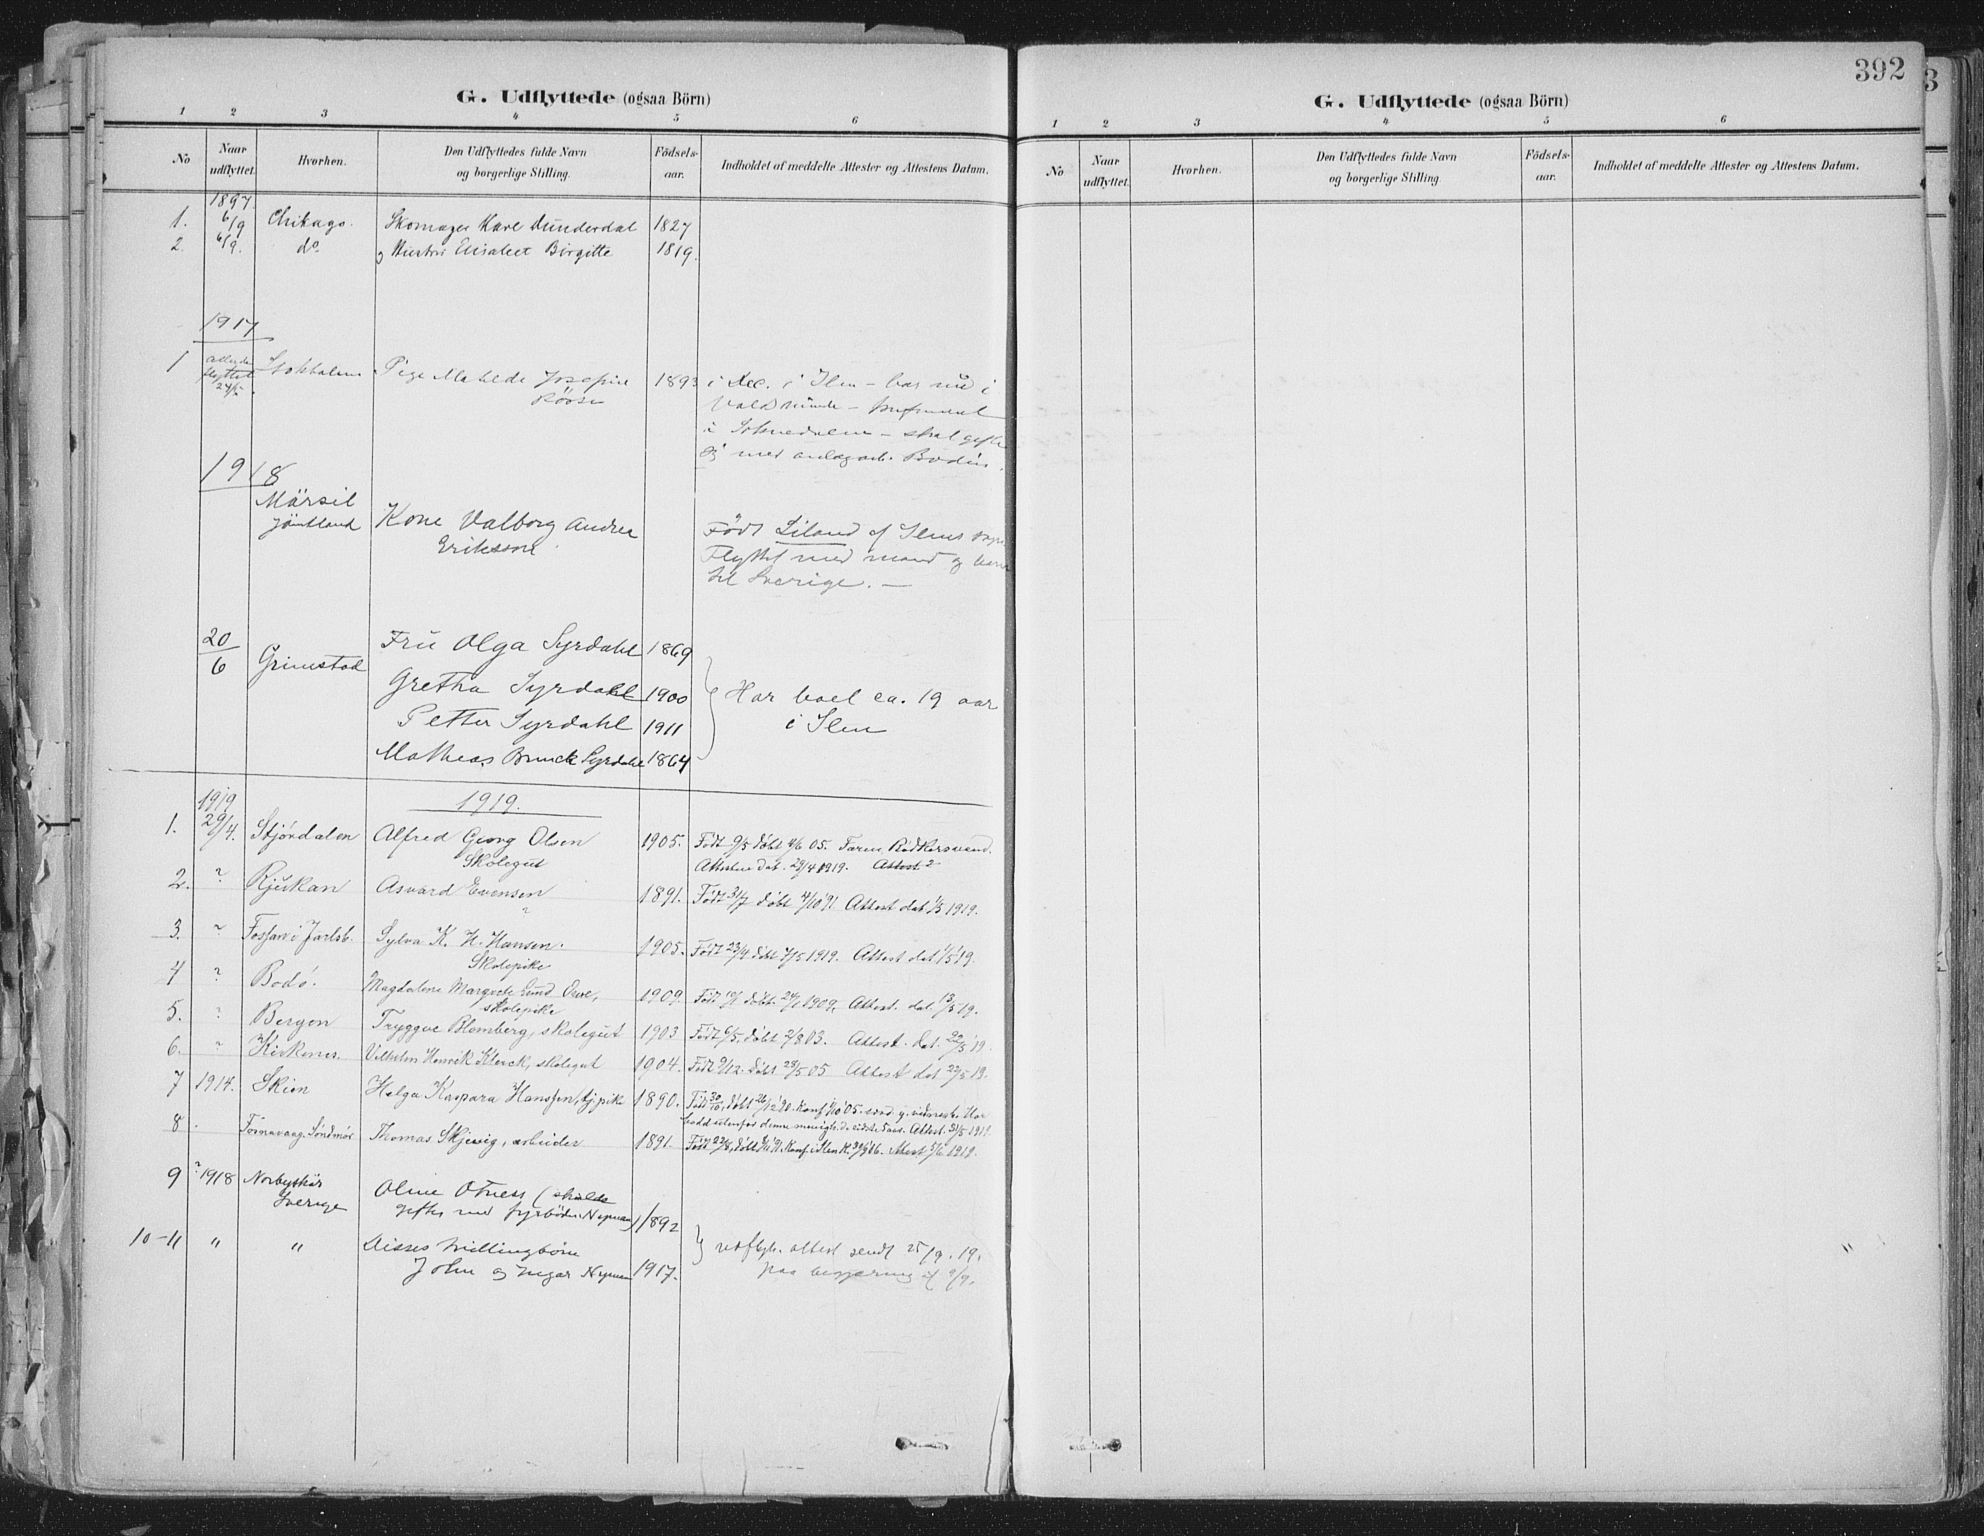 G. Udflyttede (ogsaa Börn)
1 2 3 4 5 6
No Naar udflyttet. Hvorhen. Den Udflyttedes fulde Navn og borgerlige Stilling. Födsels-aar. Indholdet af meddelte Attester og Attestens Datum.
1897.
1. 6/9 Chikago. Skomager Karl 1827
2 6/9. do og Hustru Elisabet Birgitte 1819.
1917
1 allerede flyttet 24/5 Stokholm Pige Matilde Josefine 1893 i Dec. i Ilen – bor nu i
i Soknedalen – skal gifte
sig med anlægsarb. Bodin.
1918
Märsil Jämtland Kone Valborg Andrea Eriksson Født Liland af Ilens sogn
Flyttet med mand og barn
til Sverige. –
20/6 Grimstad Fru Olga Syrdahl 1869
Gretha Syrdahl 1900 Har boet ca. 19 aar
Petter Syrdahl 1911 i Ilen
Matheas Brinck Syrdahl 1864
1919 1919.
1. 29/4. Stjørdalen Alfred Georg Olsen 1905. Født 9/5 døbt 4/6 05. Faren Rødkorsmand.
Skolegut Attesten dat. 29/4 1919. Attest 2
2. ? Rjukan Asvard Evensen 1891. Født 31/7 døbt 4/10 91. Attest dat. 1/5 1919.
?
3. ? Fossan i Jarlsb. Sylva K. H. Hansen. 1905. Født 23/4 døbt 7/5 1919. Attest dat 1/5 19.
Skolepike
4 ? Bodø. Magdalene Margrete Lund 1909. Født døbt 24/1 1909. Attest. dat. 13/5 19.
skolepike
5. ? Bergen Tryggve Blomberg, skolegut 1903 Født 6/5, døbt 2/8 03. Attest. dat. 22/5 19.
6. ? Kirkenes Vilhelm Henrik Klerck, skolegut 1904. Født 9/12. døbt 28/5 05 Attest dat 22/5 19.
7 1914. Skien Helga Kaspara Hanssen, tjpike 1890. Født 30/10, døbt 26/12 90. Konf. 1/10 05. Har
bodd utenfor denne menighed de sidste 5 aar. Attest. 31/5 1919
8. Fornavaag. Søndmør Thomas Skjevig, arbeider 1891. Født 22/8, døbt Konf. i Ilen K. 30/9 06. Attest 5/6 1919.
9 ? 1918 Norbyskär Sverige Oline Otness (skulde
giftes med fyrbøder Nyman) 1892
10–11 " " Disses tvillingbørn udflytn. attest sendt 25/9. 19.
John og Ingar Nyman 1917. paa begjæring af 9/9.
392
G. Udflyttede (ogsaa Börn)
1 2 3 4 5 6
No Naar udflyttet. Hvorhen. Den Udflyttedes fulde Navn og borgerlige Stilling. Födsels-aar. Indholdet af meddelte Attester og Attestens Datum.
3